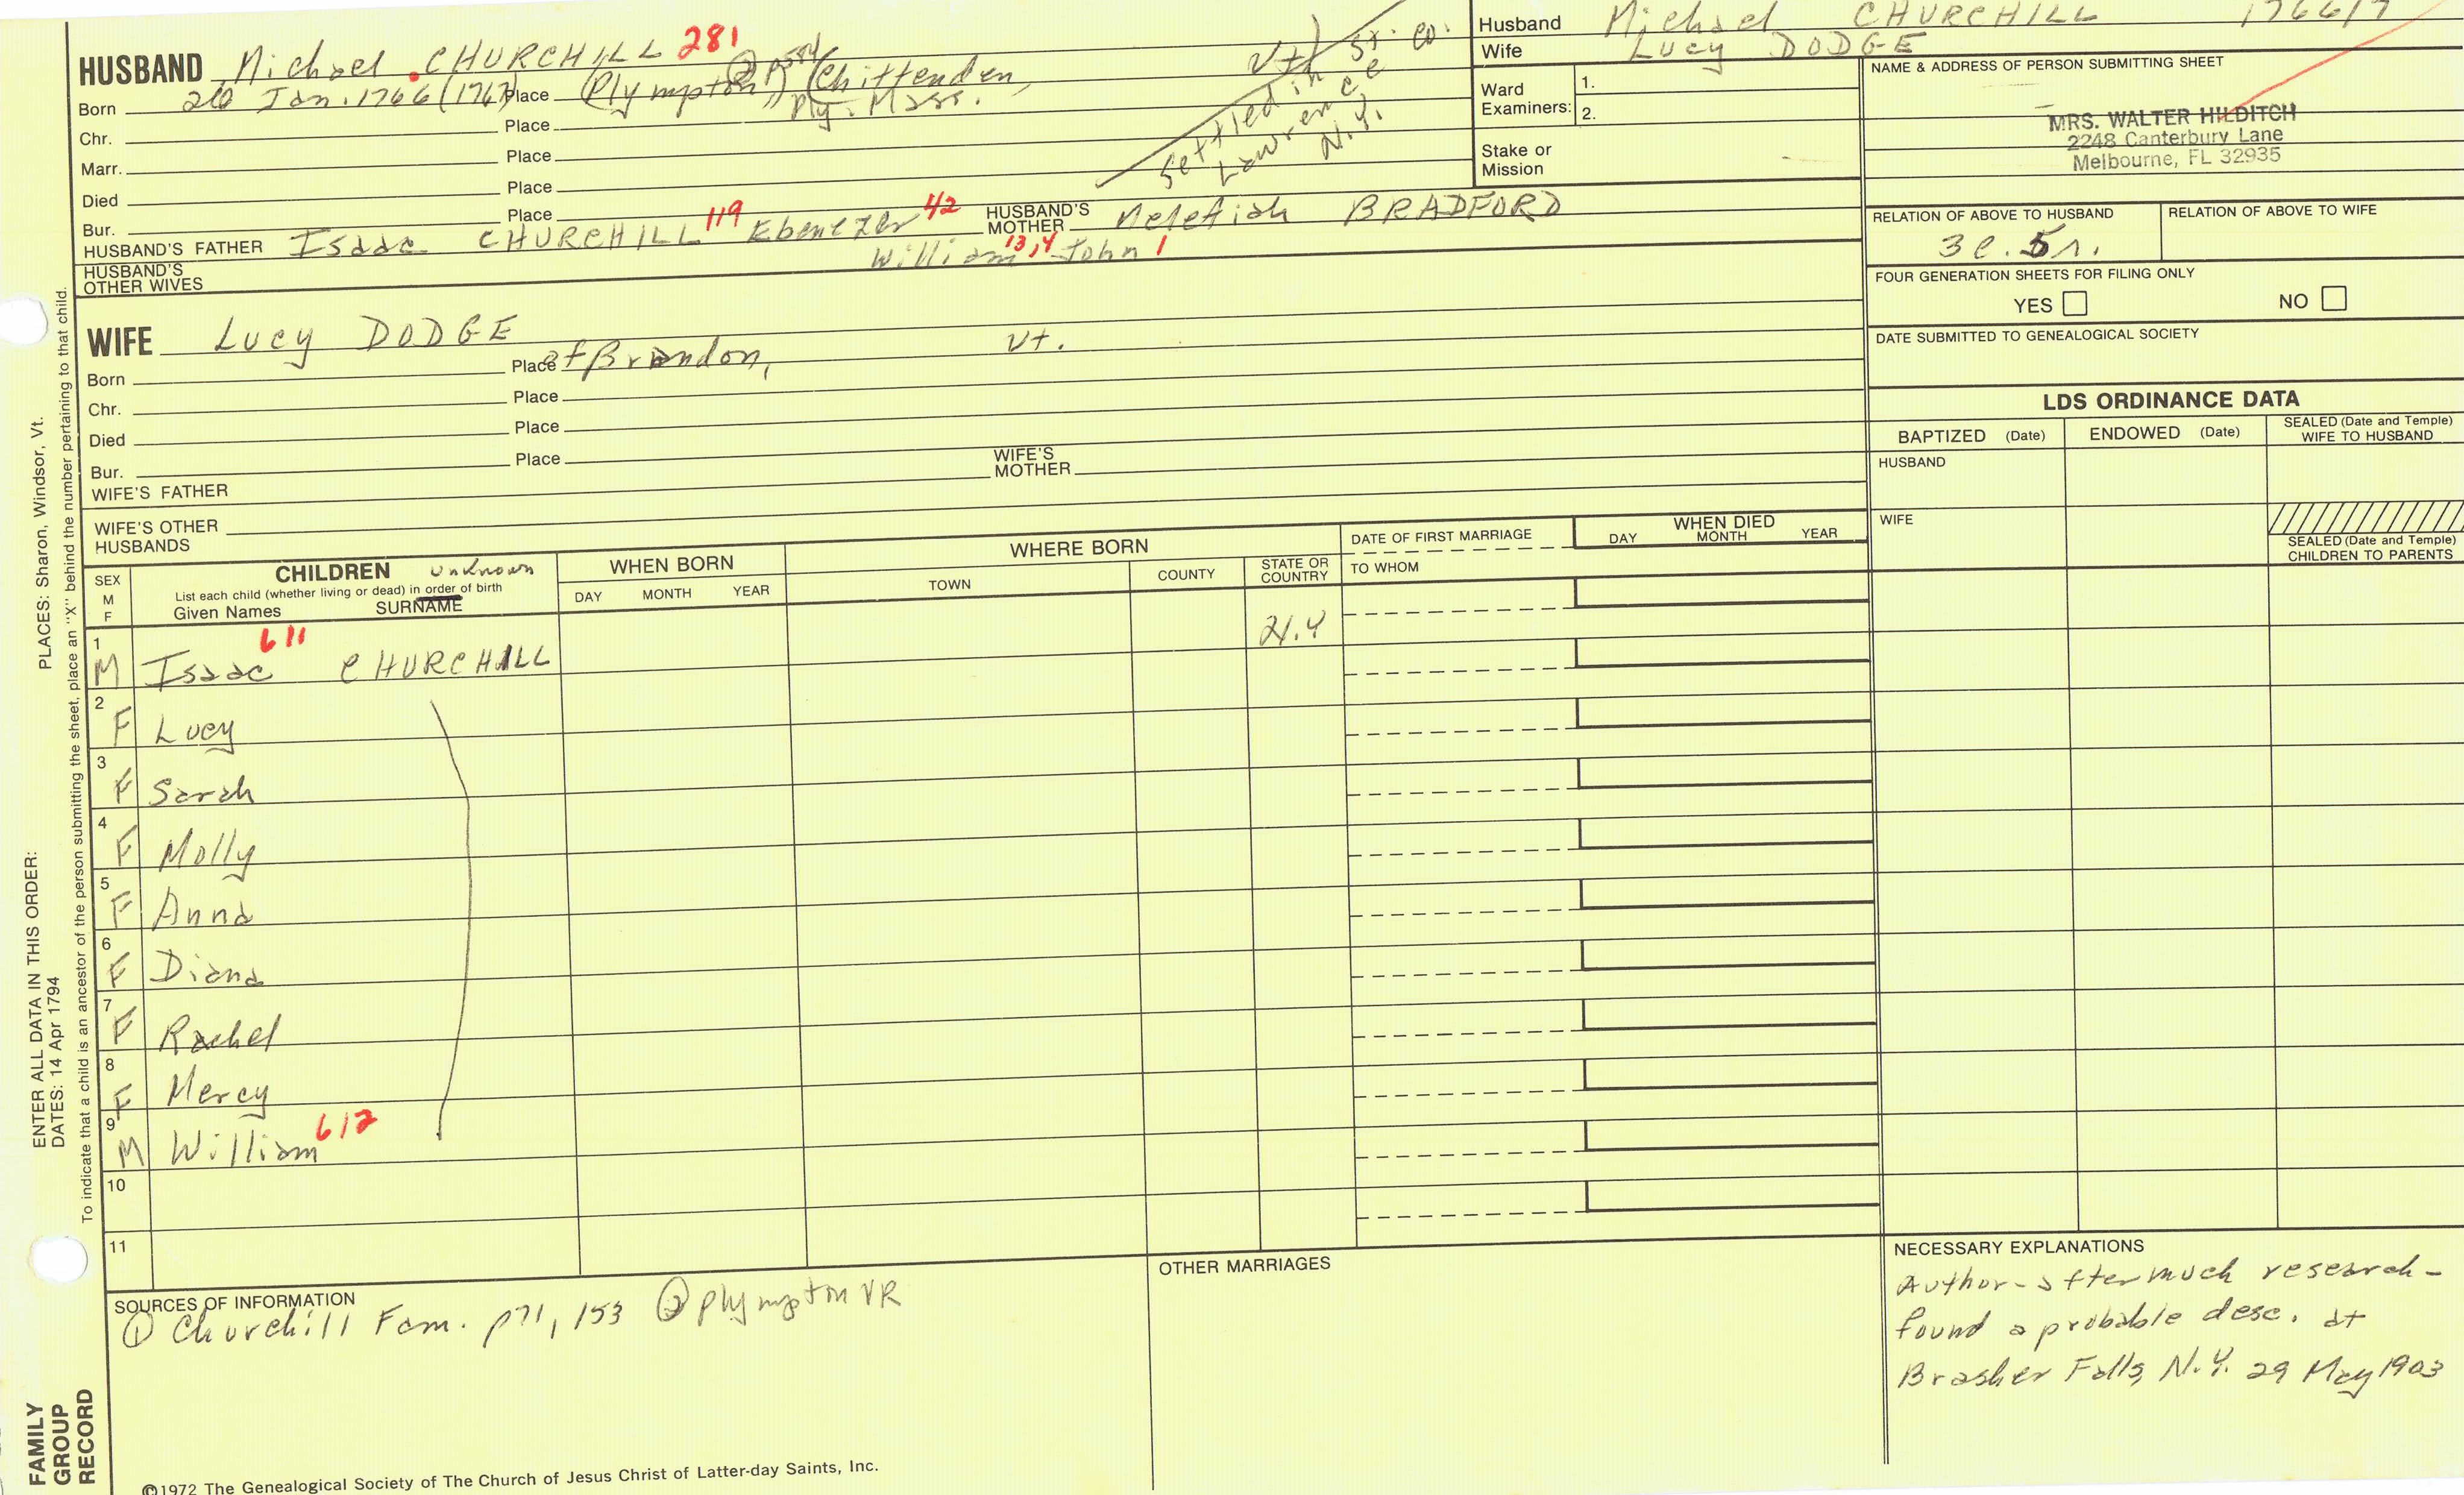 HUSBAND Michael CHURCHILL 281
Born 26 Jan. 1766 (1767) Place (Plympton) (Chittenden, Vt)
Ply. Mass.
Chr. Place
Marr. Place
Died Place
Bur. Place
Settled in St. Lawrence Co. N.Y.
HUSBAND'S FATHER Isaac CHURCHILL 119 Ebenezer 42 HUSBAND'S MOTHER Meletiah BRADFORD
William 13, 4 John 1
HUSBAND'S OTHER WIVES
WIFE Lucy DODGE
Born Place of Brandon, Vt.
Chr. Place
Died Place
Bur. Place
WIFE'S FATHER WIFE'S MOTHER
WIFE'S OTHER HUSBANDS
Husband Michael CHURCHILL 1766/7
Wife Lucy DODGE
Ward Examiners: 1.
2.
Stake or Mission
NAME & ADDRESS OF PERSON SUBMITTING SHEET
MRS. WALTER HILDITCH
2248 Canterbury Lane
Melbourne, FL 32935
RELATION OF ABOVE TO HUSBAND RELATION OF ABOVE TO WIFE
3c. 5r.
FOUR GENERATION SHEETS FOR FILING ONLY
YES NO
DATE SUBMITTED TO GENEALOGICAL SOCIETY
LDS ORDINANCE DATA
BAPTIZED (Date) ENDOWED (Date) SEALED (Date and Temple) WIFE TO HUSBAND
HUSBAND
WIFE
SEALED (Date and Temple) CHILDREN TO PARENTS
SEX M F
CHILDREN unknown
List each child (whether living or dead) in order of birth
Given Names SURNAME
WHEN BORN
DAY MONTH YEAR
WHERE BORN
TOWN COUNTY STATE OR COUNTRY
DATE OF FIRST MARRIAGE
TO WHOM
WHEN DIED
DAY MONTH YEAR
1 M Isaac 611 CHURCHILL N.Y
2 F Lucy
3 F Sarah
4 F Molly
5 F Anna
6 F Diana
7 F Rachel
8 F Mercy
9 M William 612
10
11
SOURCES OF INFORMATION
① Churchill Fam. p71, 153 ② Plympton VR
OTHER MARRIAGES
NECESSARY EXPLANATIONS
Author - after much research -
found a probable desc. at
Brasher Falls, N.Y. 29 May 1903
©1972 The Genealogical Society of The Church of Jesus Christ of Latter-day Saints, Inc.
FAMILY GROUP RECORD
ENTER ALL DATA IN THIS ORDER:
DATES: 14 Apr 1794
PLACES: Sharon, Windsor, Vt.
To indicate that a child is an ancestor of the person submitting the sheet, place an "X" behind the number pertaining to that child.